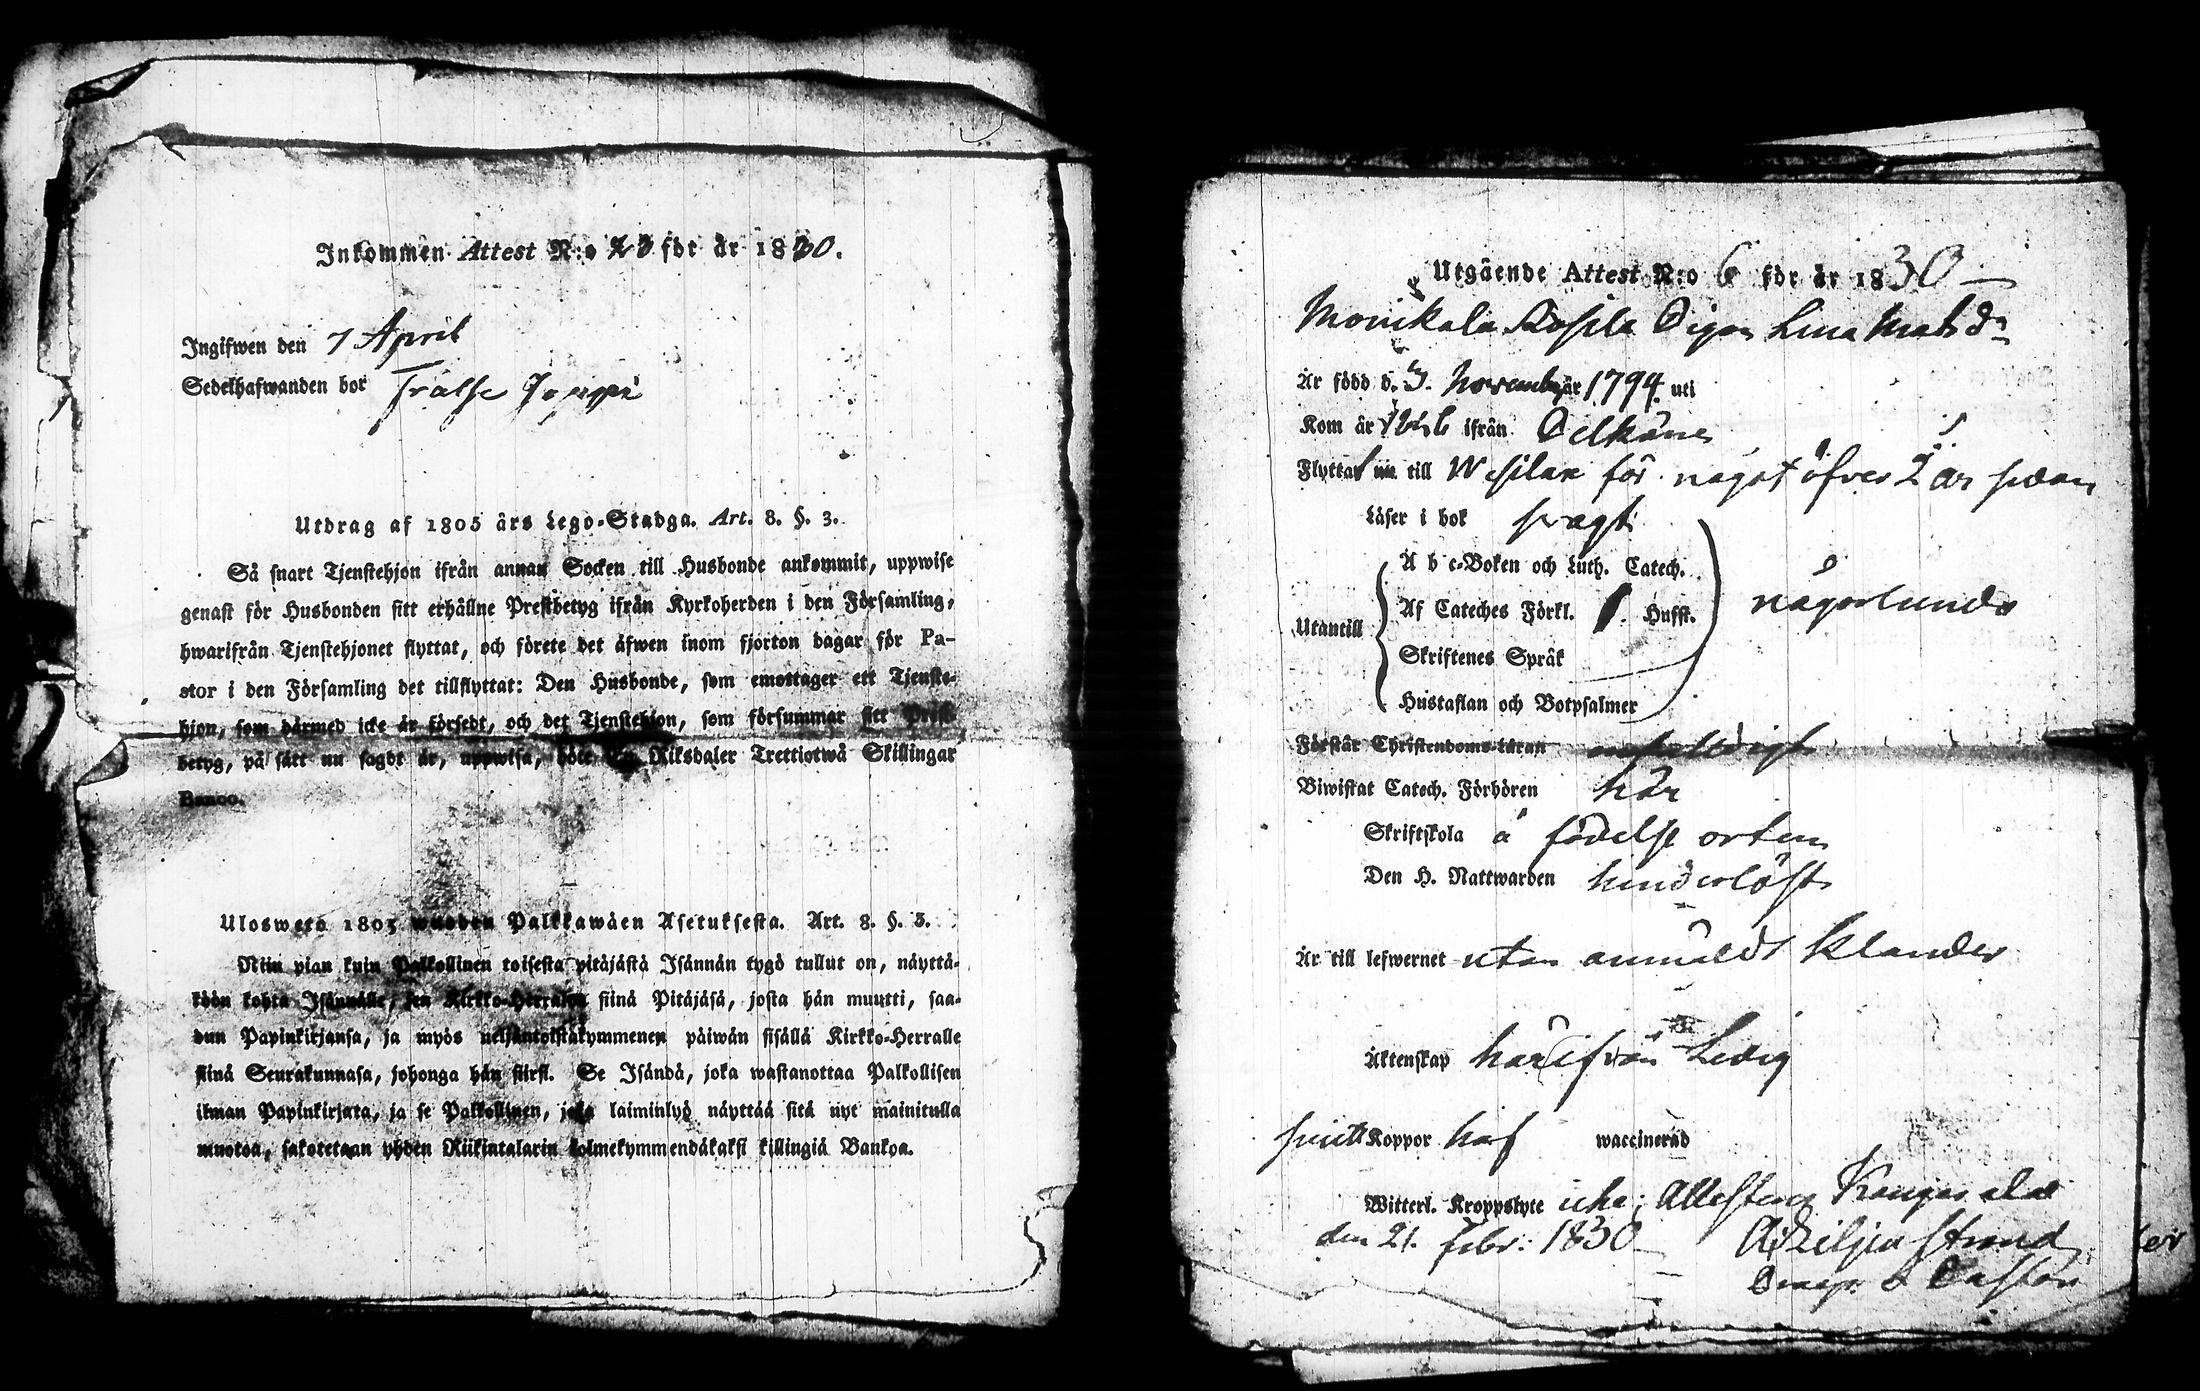 Inkommen Attest N:o 23 för år 1830.
Ingifwen den 7 April
Sedelhafwanden bor Jouppi
Utdrag af 1805 års Lego-Stadga. Art. 8. §. 3.
Så snart Tjenstehjon ifrån annan Socken till Husbonde ankommit, uppwise
genast för Husbonden sitt erhållne Prestbetyg ifrån Kyrkoherden i den Församling,
hwarifrån Tjenstehjonet flyttat, och förete det äfwen inom fjorton dagar för Pa-
stor i den Församling det tillflyttat: Den Husbonde, som emottager ett Tjenste-
hjon, som därmed icke är försedt, och det Tjenstehjon, som försummar sitt Prest-
betyg, på sätt nu sagdt är, uppwisa, böte En Riksdaler Trettiotwå Skillingar
Banco.
Uloswetö 1805 wuoden Palkkawäen Asetuksesta. Art. 8. §. 3.
Niin pian kuin Palkollinen toisesta pitäjästä Isännän tygö tullut on, näyttä-
köön kohta Isännälle, sen Kirkko-Herralda siinä Pitäjäsä, josta hän muutti, saa-
dun Papinkirjansa, ja myös neljäntoistakymmenen päiwän sisällä Kirkko-Herralle
siinä Seurakunnasa, johonga hän siirsi. Se Isändä, joka wastanottaa Palkollisen
ilman Papinkirjata, ja se Palkollinen, joka laiminlyö näyttää sitä nyt mainitulla
muotoa, sakotetaan yhden Riikintalarin kolmekymmendäkaksi killingiä Bankoa.
Utgående Attest N:o 6 för år 1830
Monikala Rosila Pigan Lena Matsdr
Är född d. 3. November år 1794 uti
Kom år ifrån Pelkäne
Flyttat nu till Wesilax för något öfver 2 år sedan
Läser i bok svagt
Utantill
A b c-Boken och Luth. Catech.
Af Cateches Förkl. 1. Hufst.
Skriftenes Språk
Hustaflan och Botpsalmer
någorlunda
Förstår Christendoms-Läran enfaldigt
Biwistat Catech. Förhören här
Skriftskola å födelse orten
Den H. Nattwarden hinderlöst
Är till lefwernet utan anmäldt klander
Äktenskap härifrån Ledig
Koppor haf waccinerad
Witterl. Kroppslyte icke; Attesterar Kangasala
den 21. Febr: 1830 Liljestrand
Pastor